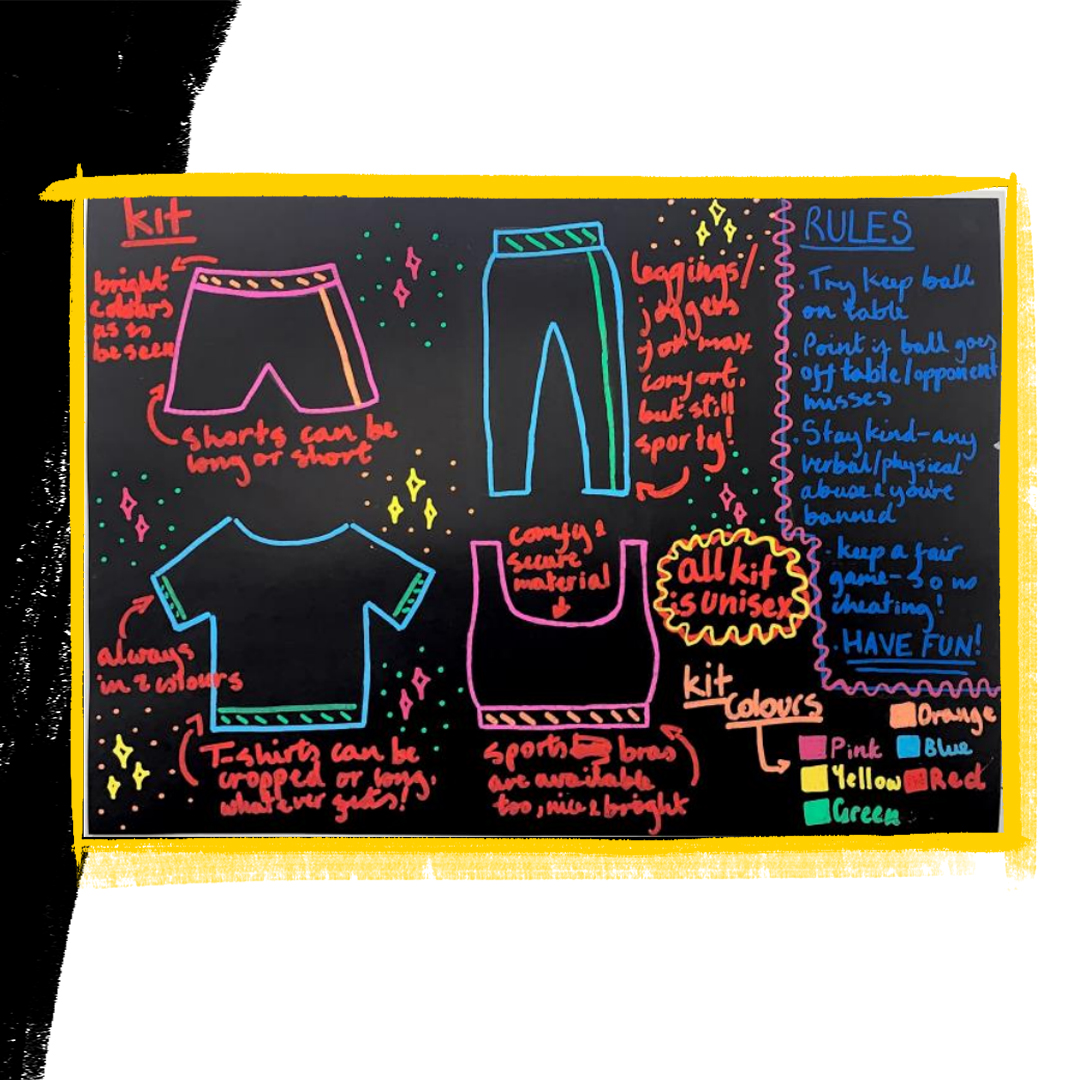 kit
bright
colours
as to
be seen
shorts can be
long or short
leggings/
joggers
for max
comfort,
but still
sporty!
always
in 2 colours
T-shirts can be
cropped or long,
whatever
comfy &
secure
material
sports bras
are available
too, nice & bright
all kit
is unisex
kit
colours
Orange
Pink
Blue
Yellow
Red
Green
RULES
. Try keep ball
on table
. Point if ball goes
off table/opponent
misses
. Stay kind-any
verbal/physical
abuse & you're
banned
. keep a fair
game- so no
cheating!
. HAVE FUN!